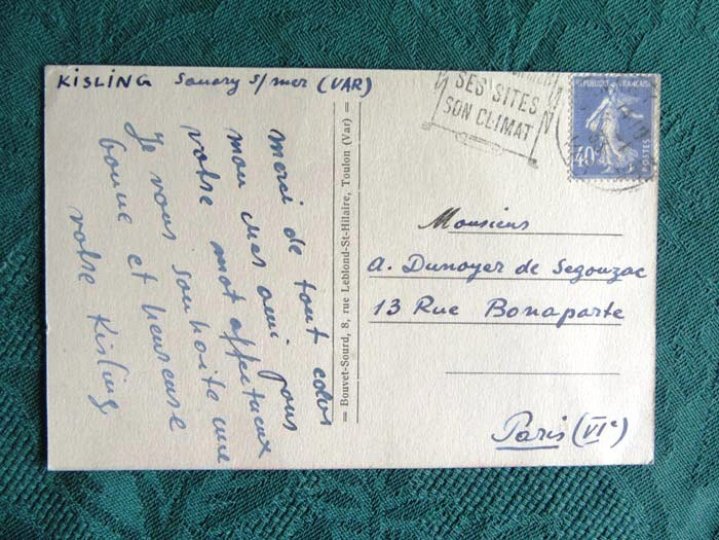 KISLING Sanary s/mer (VAR)
merci de tout cœur
mon cher ami pour
votre mot affectueux
Je vous souhaite une
bonne et heureuse
votre Kisling
= Bouvet-Sourd, 8, rue Leblond-St-Hilaire, Toulon (Var) =
SES SITES
SON CLIMAT
REPUBLIQUE FRANÇAISE
40c
POSTES
Monsieur
A. Dunoyer de Segonzac
13 Rue Bonaparte
Paris (VIe)